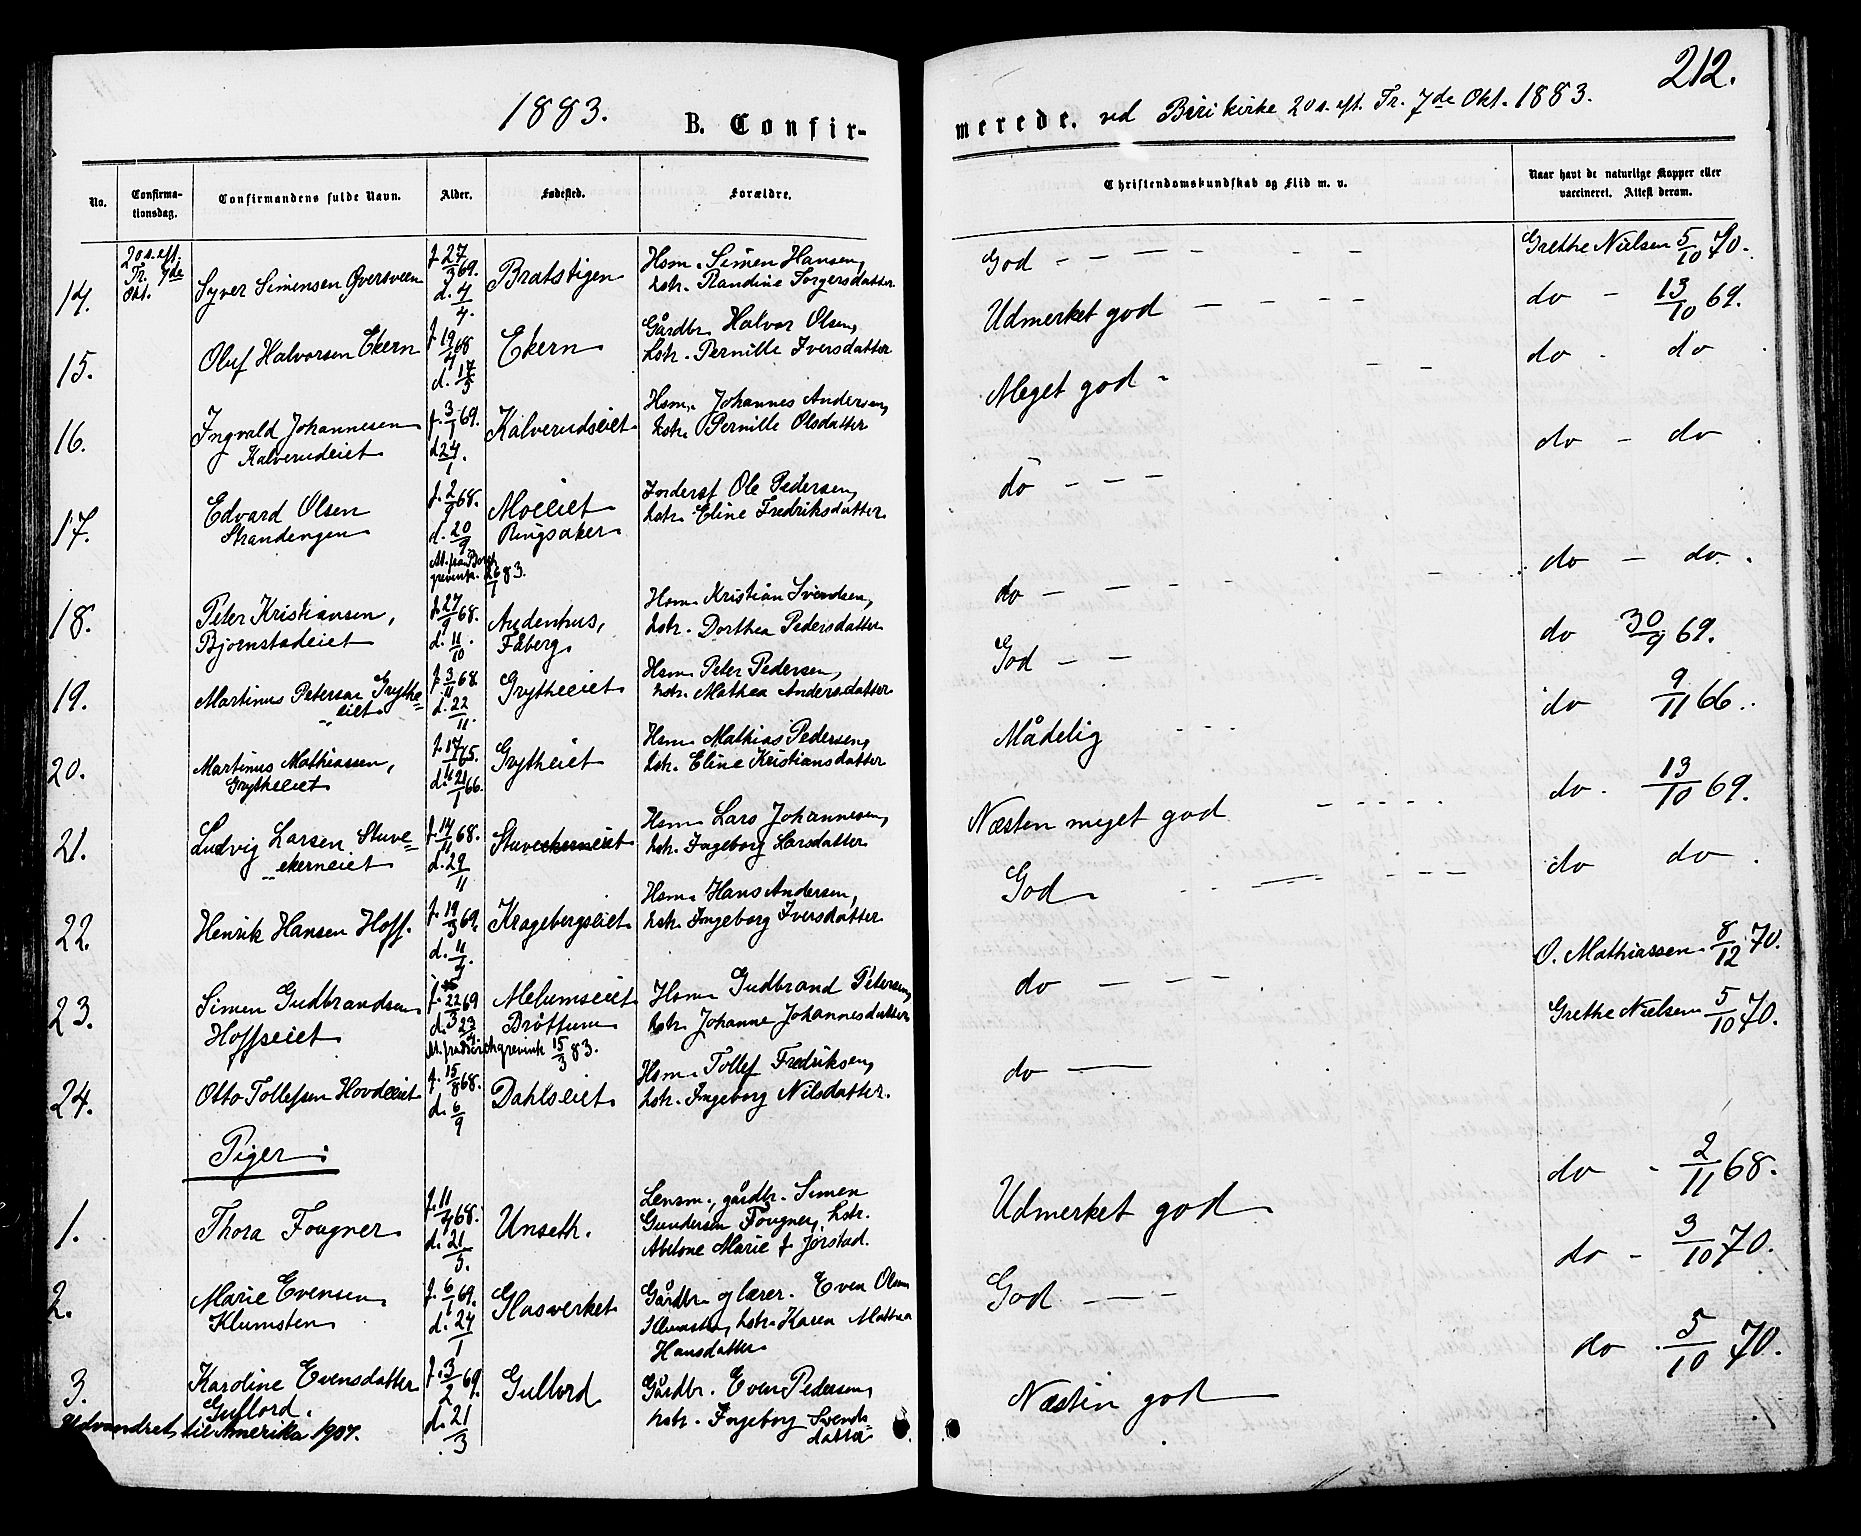 1883.
B. Confir-
No.
Confirma-
tionsdag.
Confirmandens fulde Navn.
Alder.
Fødested.
Forældre.
20 s. eft.
Tr. 7de
Okt.
14.
Syver Simensen Øversveen
f. 27/3 69.
d. 4/4.
Bratstigen
Hsm. Simen Hansen,
hstr. Randine Torgersdatter
15.
Oluf Halvorsen Ekern
f. 19/4 68
d. 17/5
Ekern
Gårdbr. Halvor Olsen,
hstr. Pernille Iversdatter
16.
Ingvald Johannesen
Kalverudeiet
f. 3/1 69.
d. 24/1.
Kalverudseiet
Hsm. Johannes Andersen,
hstr. Pernille Olsdatter
17.
Edvard Olsen
Strandengen
f. 2/9 68.
d. 20/9
Moeiet
Ringsaker
Inderst Ole Pedersen,
hstr. Eline Fredriksdatter
83.
18.
Peter Kristiansen,
Bjørnstadeiet
f. 27/9 68.
d. 11/10.
Audenhus,
Fåberg
Hsm. Kristian Svendsen,
hstr. Dorthea Pedersdatter
19.
Martinus Petersen Grythe=
eiet
f. 3/11 68
d. 22/11.
Grytheeiet
Hsm. Peter Pedersen,
hstr. Mathea Andersdatter
20.
Martinus Mathiassen,
Grytheeiet
f. 17/11 65.
d. 21/1 66.
Grytheeiet
Hsm. Mathias Pedersen,
hstr. Eline Kristiansdatter
21.
Ludvig Larsen Stuve=
ekerneiet
f. 14/11 68.
d. 29/11
Stuveekerneiet
Hsm. Lars Johannesen,
hstr. Ingeborg Larsdatter
22.
Henrik Hansen Hoff.
f. 19/3 69.
d. 11/4.
Kragebergseiet
Hsm. Hans Andersen,
hstr. Ingeborg Iversdatter
23.
Simen Gudbrandsen
Hoffseiet
f. 22/3 69
d. 23/
Melumseiet
Brøttum
Hsm. Gudbrand Petersen,
hstr. Johanne Johannesdatter
15/3 83.
24.
Otto Tollefsen Hovdeeiet
f. 15/8 68.
d. 6/9
Dahlseiet
Hsm. Tollef Fredriksen,
hstr. Ingeborg Nilsdatter.
Piger:
1.
Thora Fougner
f. 11/4 68.
d. 21/5.
Unseth.
Lensm., gårdbr. Simen
Gundersen Fougner, hstr.
Abelone Marie f. Jørstad.
2.
Marie Evensen
Klumsten
f. 6/1 69.
d. 24/1
Glasverket
Gårdbr. og lærer. Even Olsen
Klumsten, hstr. Karen Mathea
Hansdatter
3.
Karoline Evensdatter
Gullord.
f. 3/2 69.
d. 21/3
Gullord
Gårdbr. Even Pedersen,
hstr. Ingeborg Svends-
datter
Udvandret til Amerika 1907.
212.
merede. ved Biri kirke 20 s. eft. Tr. 7de Okt. 1883.
Christendomskundskab og Flid m. v.
Naar havt de naturlige Kopper eller
vaccineret. Attest derom.
God
Grethe Nielsen 5/10 70.
Udmerket god
do - 13/10 69.
Meget god
do - do
do
do - do
do
do - do.
God
do 30/9 69.
Mådelig
do 9/11 66.
Næsten meget god
do. 13/10 69.
God
do do
do
O. Mathiassen 8/12 70.
do
Grethe Nielsen 5/10 70.
Udmerket god
do - 2/11 68.
God
do - 3/10 70.
Næsten god
do 5/10 70.